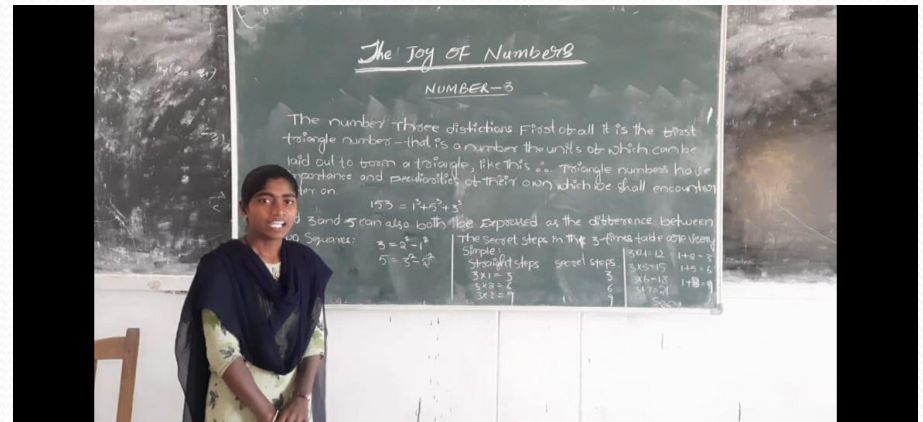 The Joy OF Numbers
NUMBER-3
The number Three distictions First of all it is the first
triangle number - that is a number the units of which can be
laid out to form a triangle, like this ∴ Triangle numbers have
importance and peculiarities of their own which we shall encounter
on.
153 = 1³+5³+3³
3 and 5 can also both be Expressed as the difference between
Squares:
3 = 2²-1²
5 = 3²-2²
The secret steps in the 3-times table are very
Simple:
Straight steps secret steps
3x1=3 3
3x2=6 6
3x3=9 9
3x4=12 1+2=3
3x5=15 1+5=6
3x6=18 1+8=9
3x7=21